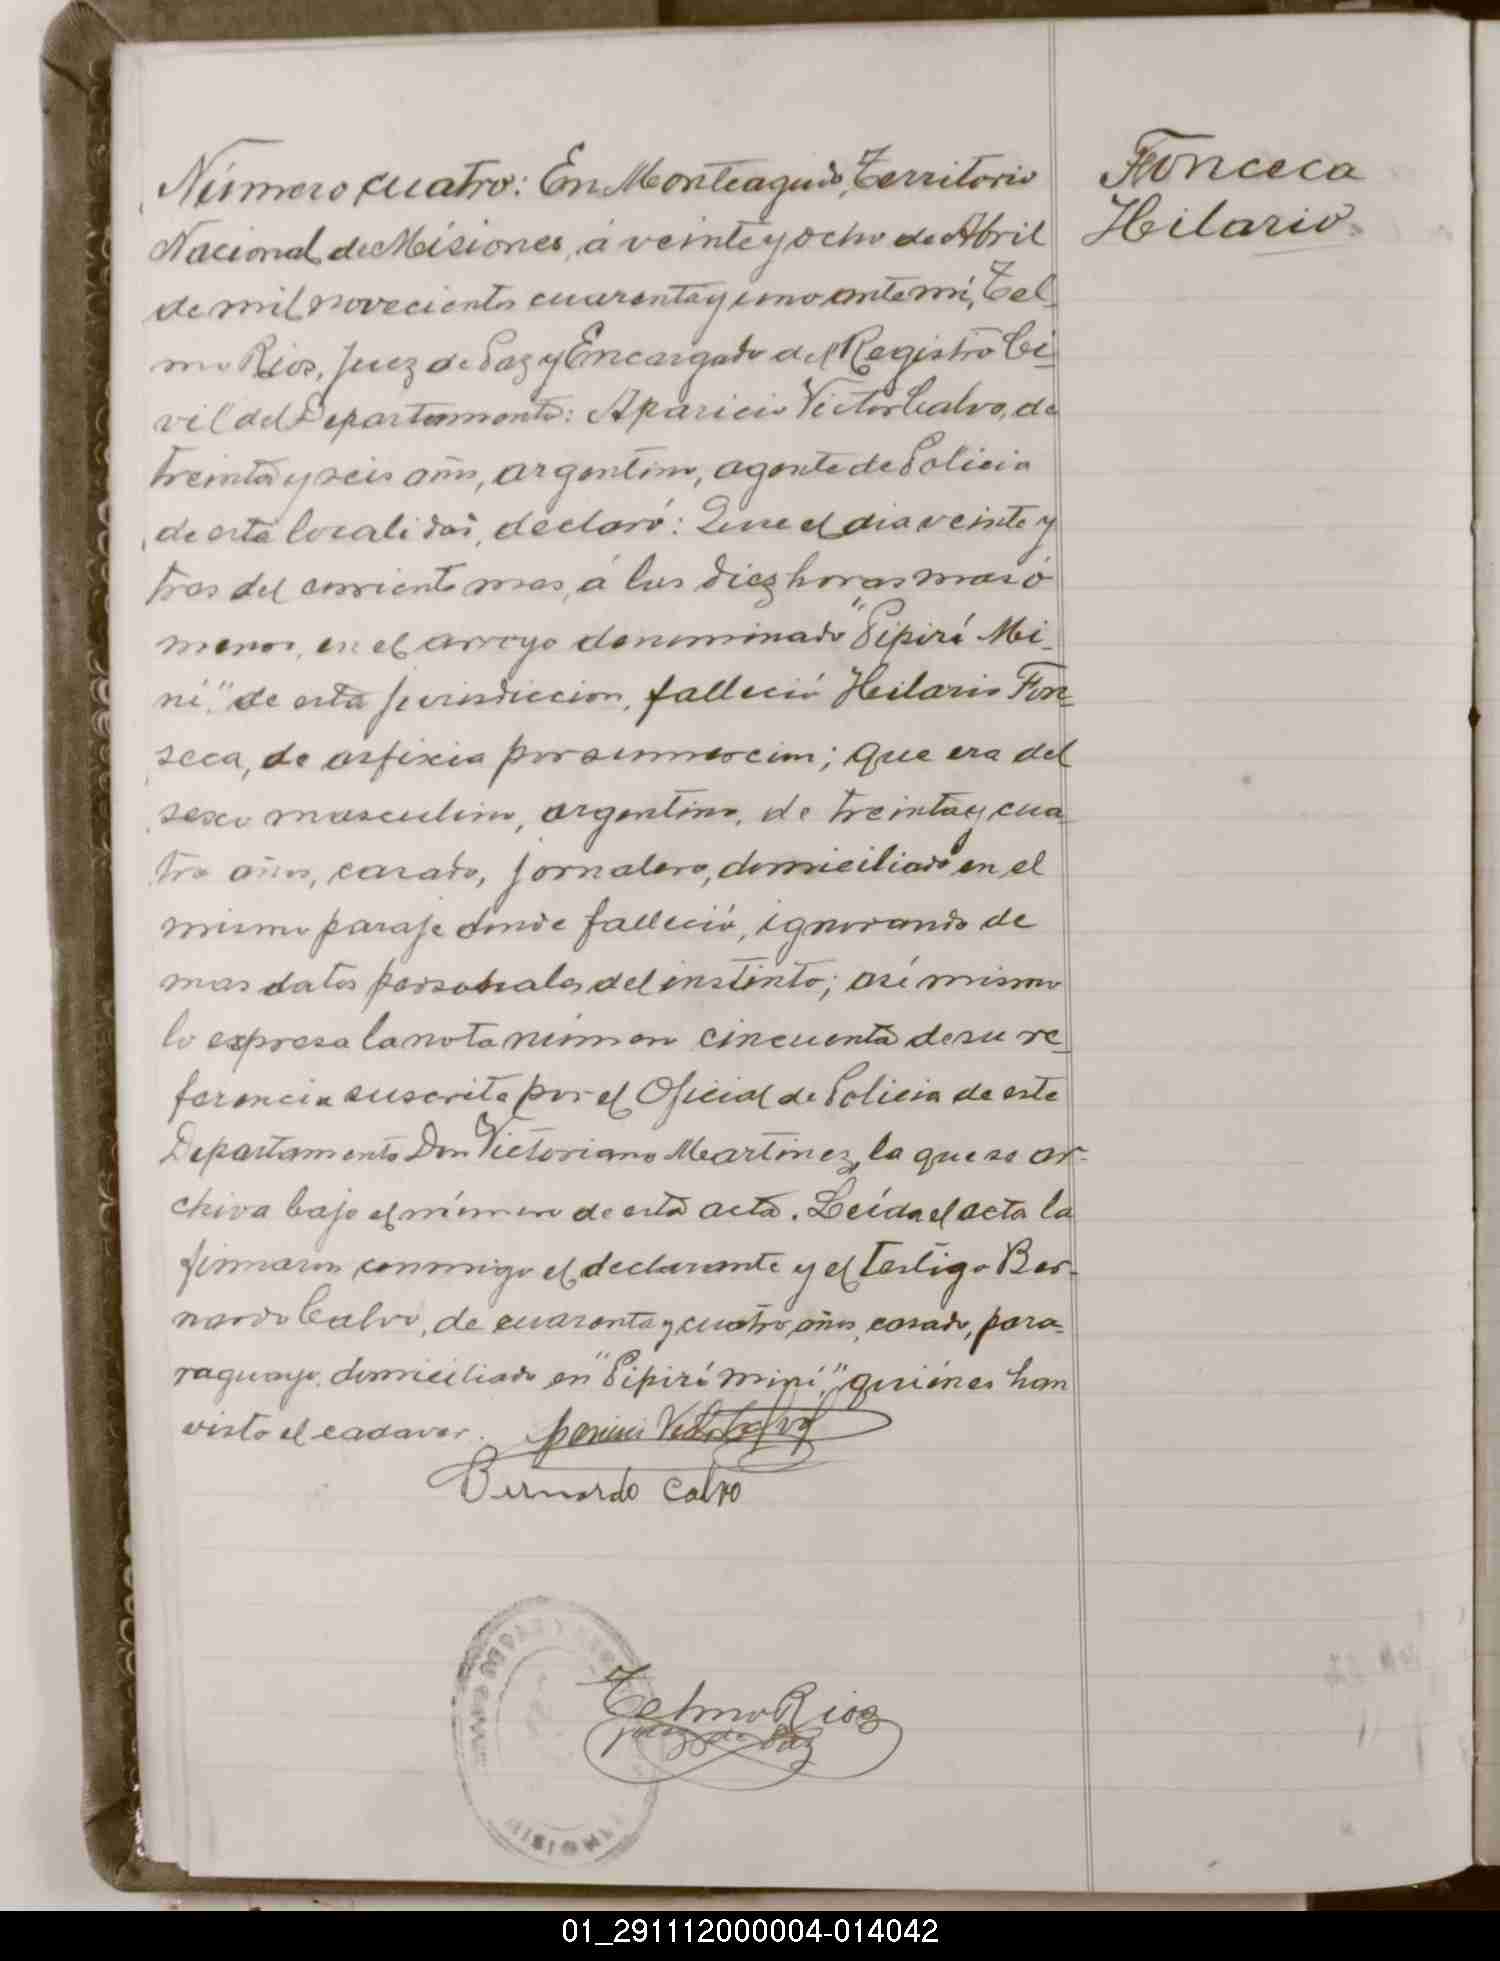 Fonceca
Hilario.
Número cuatro: En Monteagudo, Territorio
Nacional de Misiones, á veinte y ocho de Abril
de mil novecientos cuarenta y uno ante mí, Tel-
mo Rios, Juez de Paz y Encargado del Registro Ci-
vil del Departamento: Aparicio Victor Calvo, de
treinta y seis años, argentino, agente de Policia
de esta localidad, declaró: Que el dia veinte y
tres del corriente mes, á las diez horas mas ó
menos, en el arroyo denominado "Pipirí Mi-
ní", de esta jurisdiccion, falleció Hilario Fon-
seca, de asfixia por sumercion; que era del
sexo masculino, argentino, de treinta y cua
tro años, casado, jornalero, domiciliado en el
mismo paraje donde falleció, ignorando de
mas datos personales del instinto; asi mismo
lo expresa la nota número cincuenta de su re-
ferencia suscrita por el Oficial de Policia de este
Departamento Don Victoriano Martinez, la que se ar-
chiva bajo el número de esta acta. Leída el acta la
firmaron conmigo el declarante y el testigo Ber-
nardo Calvo, de cuarenta y cuatro años, casado, para-
raguayo, domiciliado en "Pipirí miní," quiénes han
visto el cadaver.
Bernardo Calvo
Telmo Rios
Juez de Paz
01_291112000004-014042